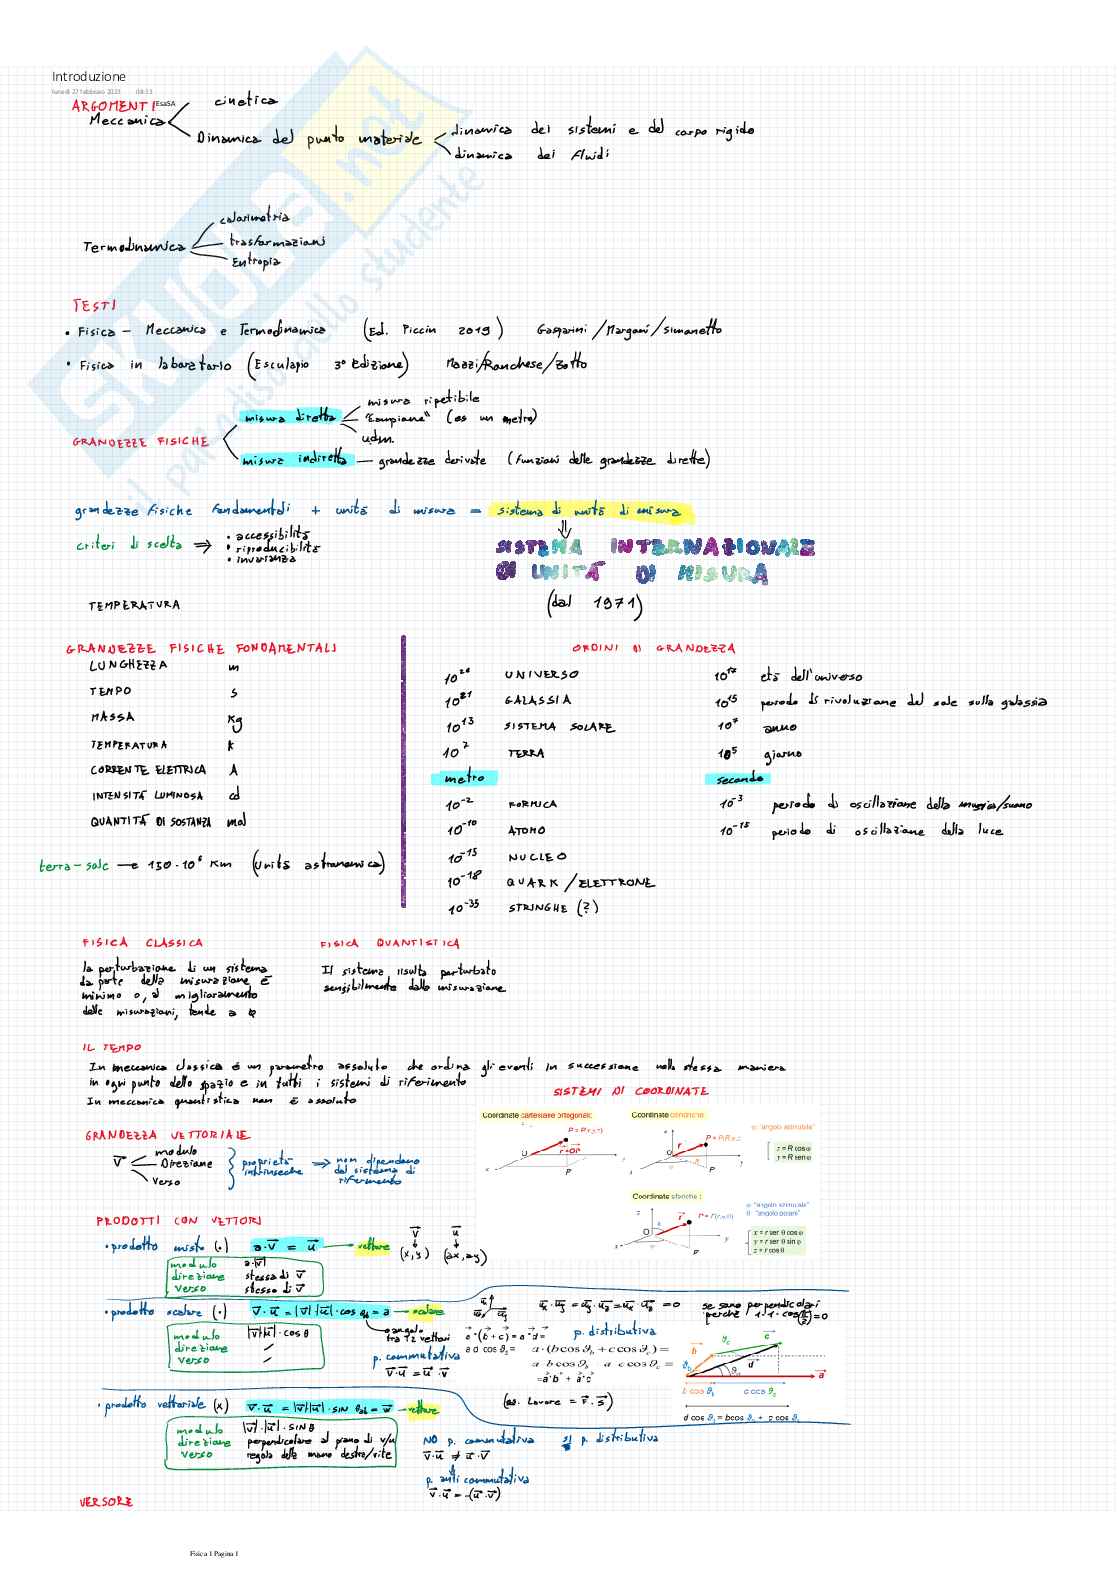 Introduzione
lunedì 27 febbraio 2023 08:33
ARGOMENTI EsaSA
cinetica
Meccanica
Dinamica del punto materiale
dinamica dei sistemi e del corpo rigido
dinamica dei fluidi
calorimetria
Termodinamica trasformazioni
Entropia
TESTI
• Fisica - Meccanica e Termodinamica (Ed. Piccin 2019) Gasparini/Margoni/Simonetto
• Fisica in laboratorio (Esculapio 3° Edizione) Mazzi/Ronchese/Zotto
misura ripetibile
misura diretta "Campione" (es un metro)
u.d.m.
GRANDEZZE FISICHE
misura indiretta — grandezze derivate (funzioni delle grandezze dirette)
grandezze fisiche fondamentali + unità di misura = sistema di unità di misura
criteri di scelta ⇒ • accessibilità
• riproducibilità
• invarianza
SISTEMA INTERNAZIONALE
DI UNITÀ DI MISURA
(dal 1971)
TEMPERATURA
GRANDEZZE FISICHE FONDAMENTALI
LUNGHEZZA m
TEMPO s
MASSA kg
TEMPERATURA k
CORRENTE ELETTRICA A
INTENSITÀ LUMINOSA cd
QUANTITÀ DI SOSTANZA mol
terra-sole → 150·10⁶ Km (Unità astronomica)
ORDINI DI GRANDEZZA
10²⁶ UNIVERSO 10¹⁷ età dell'universo
10²¹ GALASSIA 10¹⁵ periodo di rivoluzione del sole sulla galassia
10¹³ SISTEMA SOLARE 10⁷ anno
10⁷ TERRA 10⁵ giorno
metro secondo
10⁻² FORMICA 10⁻³ periodo di oscillazione della musica/suono
10⁻¹⁰ ATOMO 10⁻¹⁵ periodo di oscillazione della luce
10⁻¹⁵ NUCLEO
10⁻¹⁸ QUARK/ELETTRONE
10⁻³⁵ STRINGHE (?)
FISICA CLASSICA
la perturbazione di un sistema
da parte della misurazione è
minimo o, al miglioramento
delle misurazioni, tende a 0
FISICA QUANTISTICA
Il sistema risulta perturbato
sensibilmente dalla misurazione
IL TEMPO
In meccanica classica è un parametro assoluto che ordina gli eventi in successione nella stessa maniera
in ogni punto dello spazio e in tutti i sistemi di riferimento
In meccanica quantistica non è assoluto
SISTEMI DI COORDINATE
Coordinate cartesiane ortogonali:
Coordinate cilindriche:
φ: "angolo azimutale"
x = R cos φ
y = R sen φ
Coordinate sferiche:
φ: "angolo azimutale"
θ: "angolo polare"
x = r sen θ cos φ
y = r sen θ sin φ
z = r cos θ
GRANDEZZA VETTORIALE
v⃗ modulo
Direzione
verso
proprietà intrinseche ⇒ non dipendono
dal sistema di
riferimento
PRODOTTI CON VETTORI
• prodotto misto (·) a·v⃗ = u⃗ → vettore
v⃗ u⃗
(x,y) (ax,ay)
modulo a·|v⃗|
direzione stessa di v⃗
verso stesso di v⃗
• prodotto scalare (·) v⃗·u⃗ = |v⃗||u⃗|·cos θ = a → scalare
angolo
tra i 2 vettori
modulo |v⃗||u⃗|·cos θ
direzione /
verso /
p. commutativa
v⃗·u⃗ = u⃗·v⃗
u⃗ₓ·u⃗ᵧ = u⃗ᵧ·u⃗_z = u⃗ₓ·u⃗_z = 0
se sono perpendicolari
perché 1·1·cos(π/2)=0
p. distributiva
a⃗·(b⃗+c⃗) = a⃗·d⃗ =
a d cos ϑ₂ = a·(b cos ϑ_b + c cos ϑ_c) =
a b cos ϑ_b a c cos ϑ_c =
=a⃗·b⃗ + a⃗·c⃗
b cos ϑ₁ c cos ϑ₂
(es. Lavoro = F⃗·s⃗)
• prodotto vettoriale (x) v⃗·u⃗ = |v⃗||u⃗|·sin θ = w⃗ → vettore
modulo |v⃗|·|u⃗|·sin θ
direzione perpendicolare al piano di v/u
verso regola della mano destra/vite
NO p. commutativa sì p. distributiva
v⃗·u⃗ ≠ u⃗·v⃗
p. anti commutativa
v⃗·u⃗ = -(u⃗·v⃗)
VERSORE
Fisica 1 Pagina 1
SKUOLA.net
il paradiso dello studente